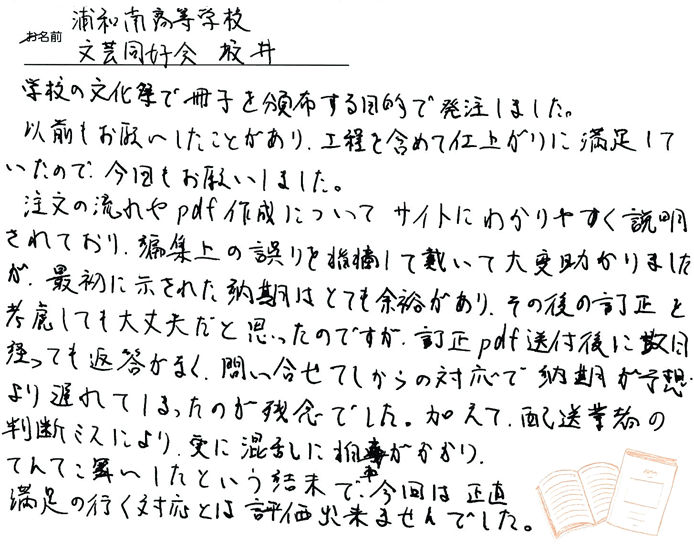 浦和南高等学校
お名前 文芸同好会 坂井
学校の文化祭で冊子を頒布する目的で発注しました。
以前もお願いしたことがあり、工程を含めて仕上がりに満足して
いたので、今回もお願いしました。
注文の流れやpdf作成について サイトにわかりやすく説明
されており、編集上の誤りを指摘して戴いて大変助かりました
が、最初に示された納期はとても余裕があり、その後の訂正を
考慮しても大丈夫だと思ったのですが、訂正pdf送付後に数日
経っても返答がなく、問い合せてしからの対応で納期が予想
より遅れてしまったのが残念でした。加えて、配送業者の
判断ミスにより、更に混乱に拍車がかかり、
てんてこ舞いしたという結末で、今回は正直
満足の行く対応とは評価出来ませんでした。